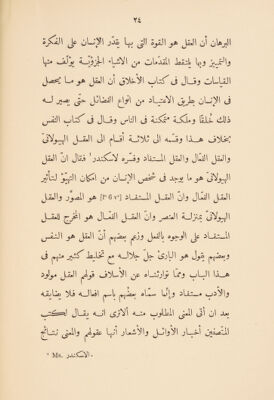 ٢٤
البرهان أن العقل هو القوة التى بها يقدّر الإنسان على الفكرة
والتمييز وبها يلتقط المقدّمات من الأشياء الجزوّيّة يؤلّف منها
القياسات وقال فى كتاب الأخلاق أن العقل هو ما يحصل
فى الإنسان بطريق الاعتياد من انواع الفضائل حتى يصير له
ذلك خُلقًا وملكة متمكنة فى الناس وقال فى كتاب النفس
بخلاف هذا وقسّمه الى ثلاثة أقسام الى العقل الهيولانىّ
والعقل الفعّال والعقل المستفاد وفسّره لاسكندر¹ فقال انّ العقل
الهيولانىّ هو ما يوجد فى شخص الإنسان من امكان التهيّؤ لتأثير
العقل الفعّال وانّ العقل المستفاد [F° 6 v°] هو المصوَّر والعقل
الهيولانىّ بمنزلة العنصر وانّ العقل الفعّال هو المخرج للعقل
المستفاد على الوجوه بالفعل وزعم بعضهم أنّ العقل هو النفس
وبعضهم يقول هو البارئ جلّ جلاله مع تخليط كثير منهم فى
هذا الباب وممّا توارثناه عن الأسلاف قولهم العقل مولود
والأدب مستفاد وإنّما سمّاه بعضهم باسم افعاله فلا يضايقه
بعد ان أتى المعنى المطلوب منه ألاترى انه يقال لكتب
المتّصفين أخبار الأوائل والأشعار أنها عقولهم والمعنى نتائج
¹ Ms. الاسكندر.